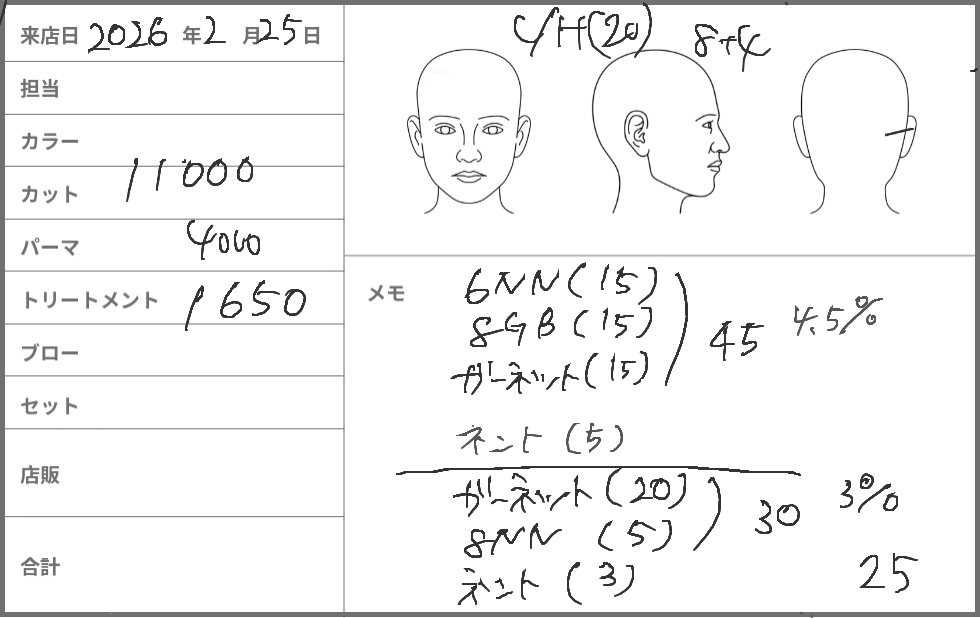 来店日 2026 年 2 月 25 日
担当
カラー
11000
カット
パーマ 4000
トリートメント 1650
ブロー
セット
店販
合計
C/H(20) 8+4
メモ
6NN(15)
8GB(15)
ガーネット(15)
45 4.5%
ネント(5)
ガーネット(20)
8NN (5)
30 3%
ネント(3)
25